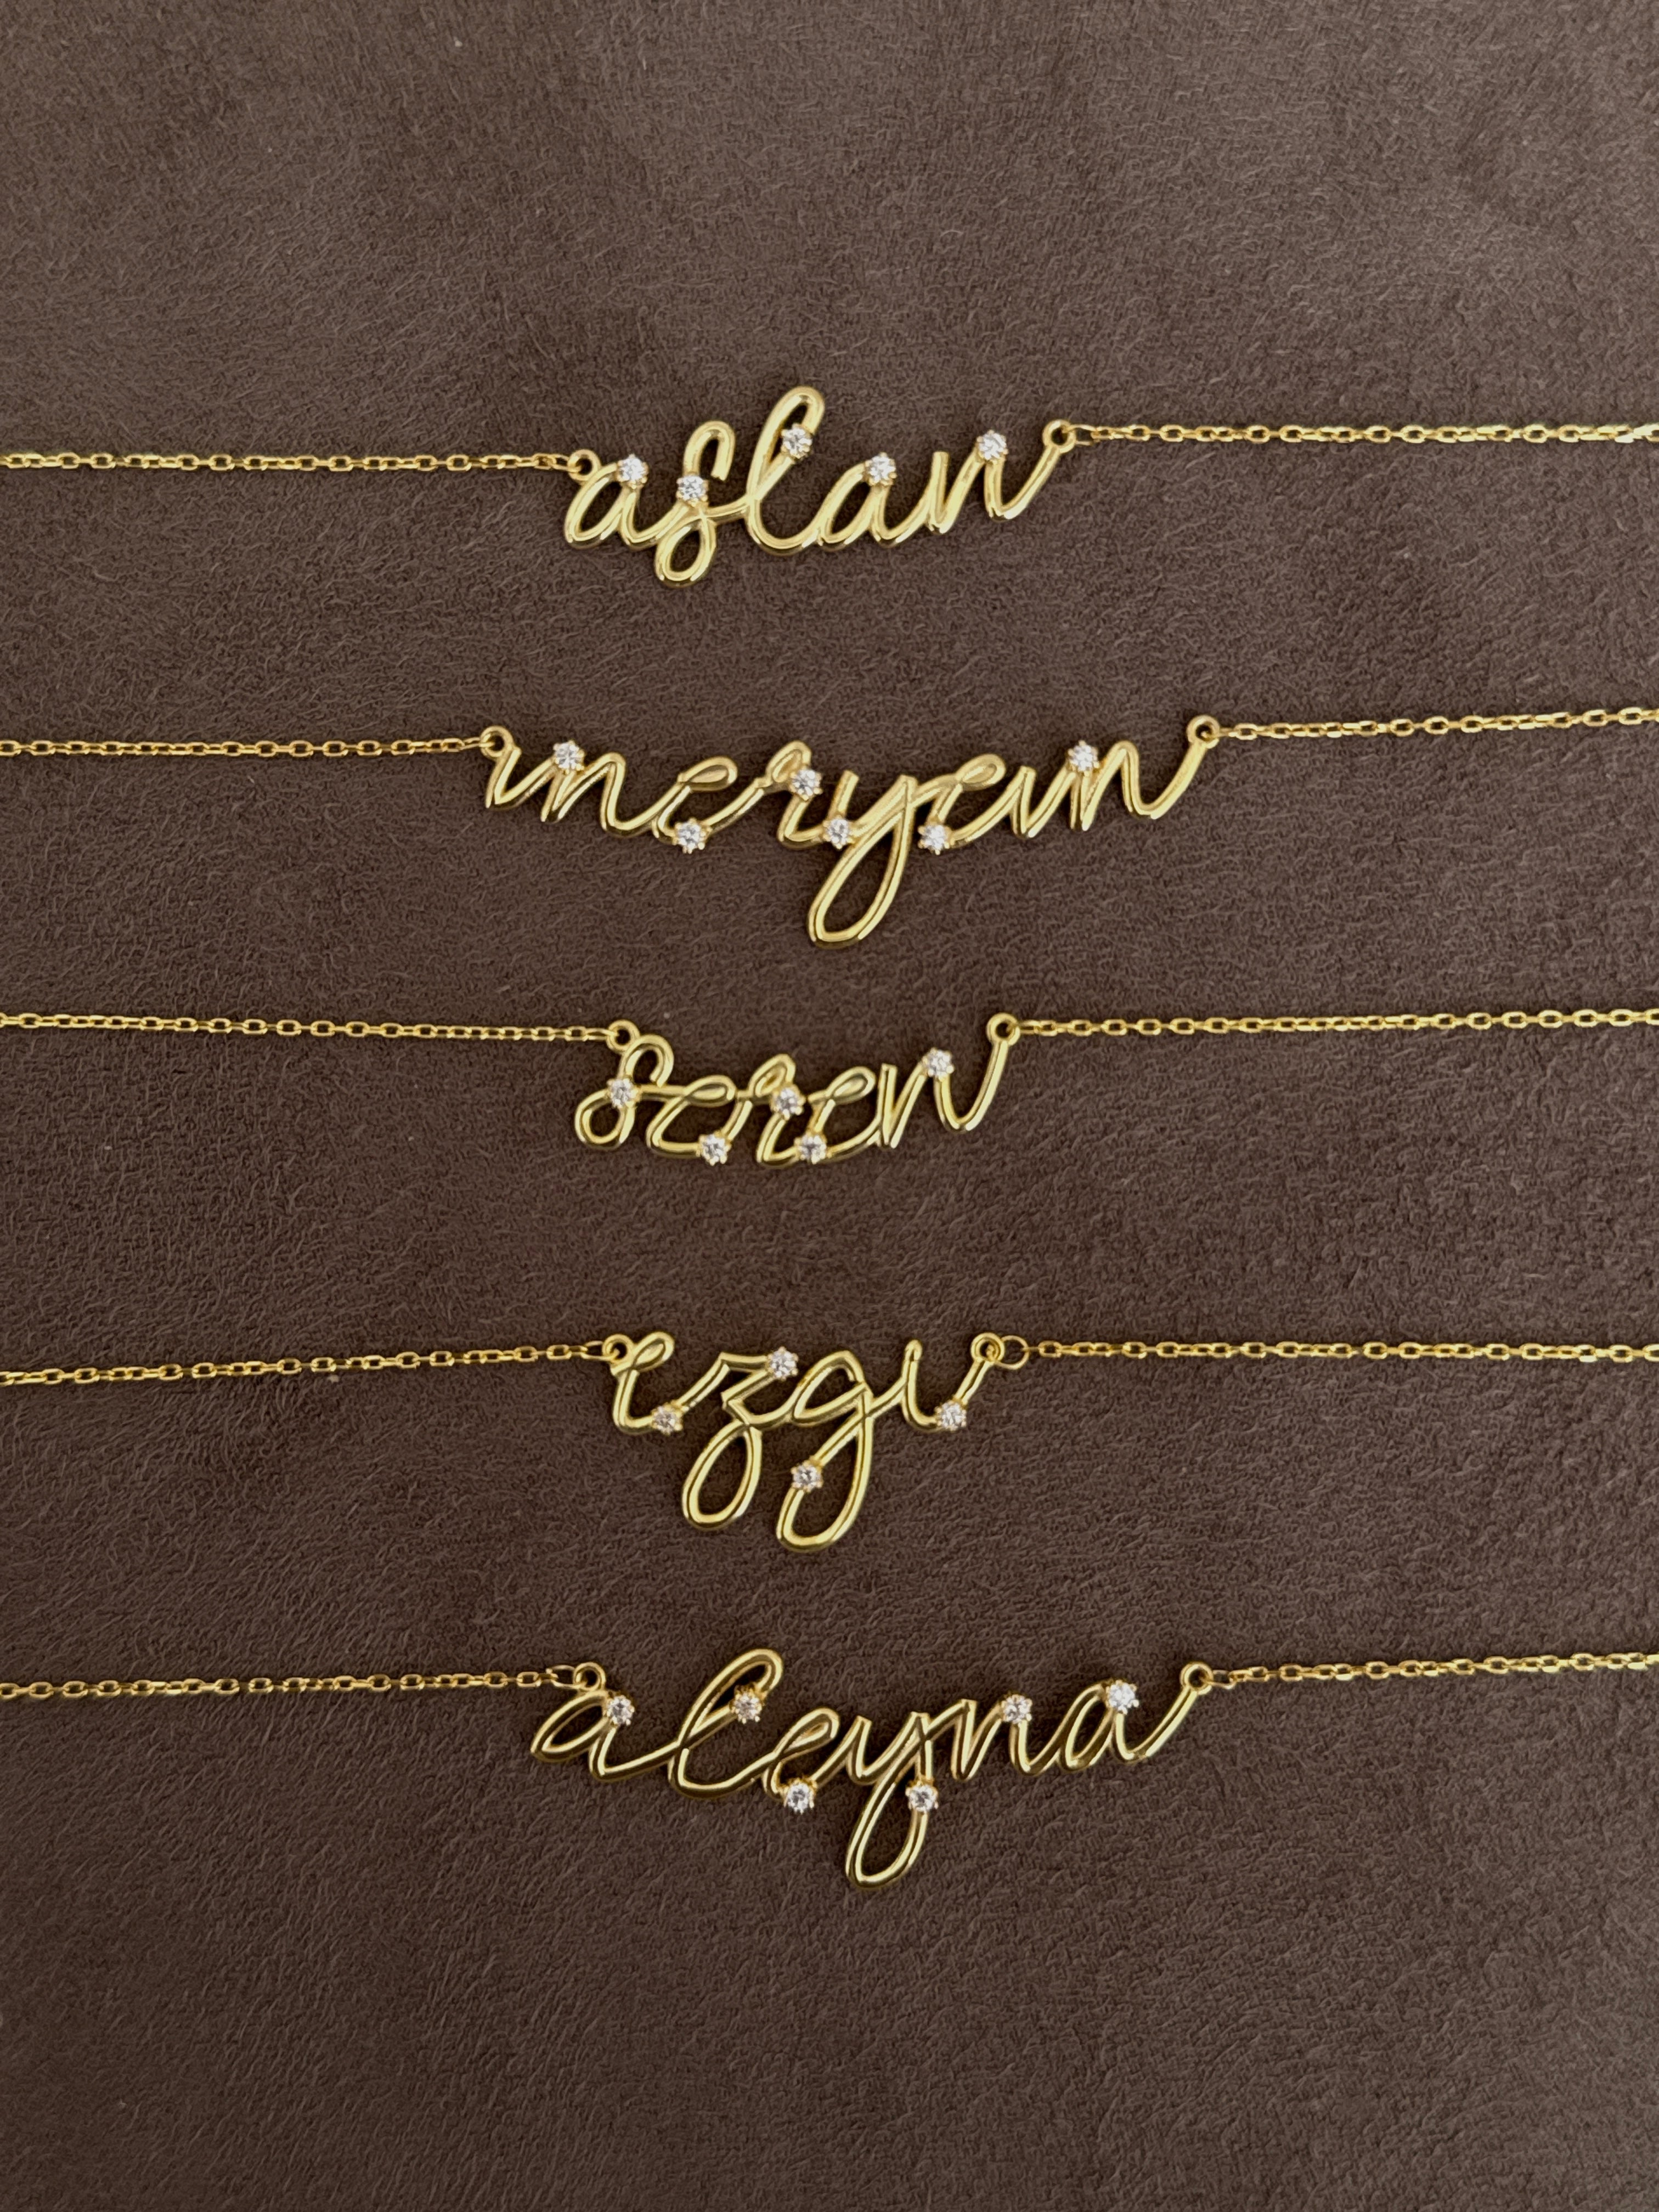 aslan
meryem
seren
ezgi
aleyna